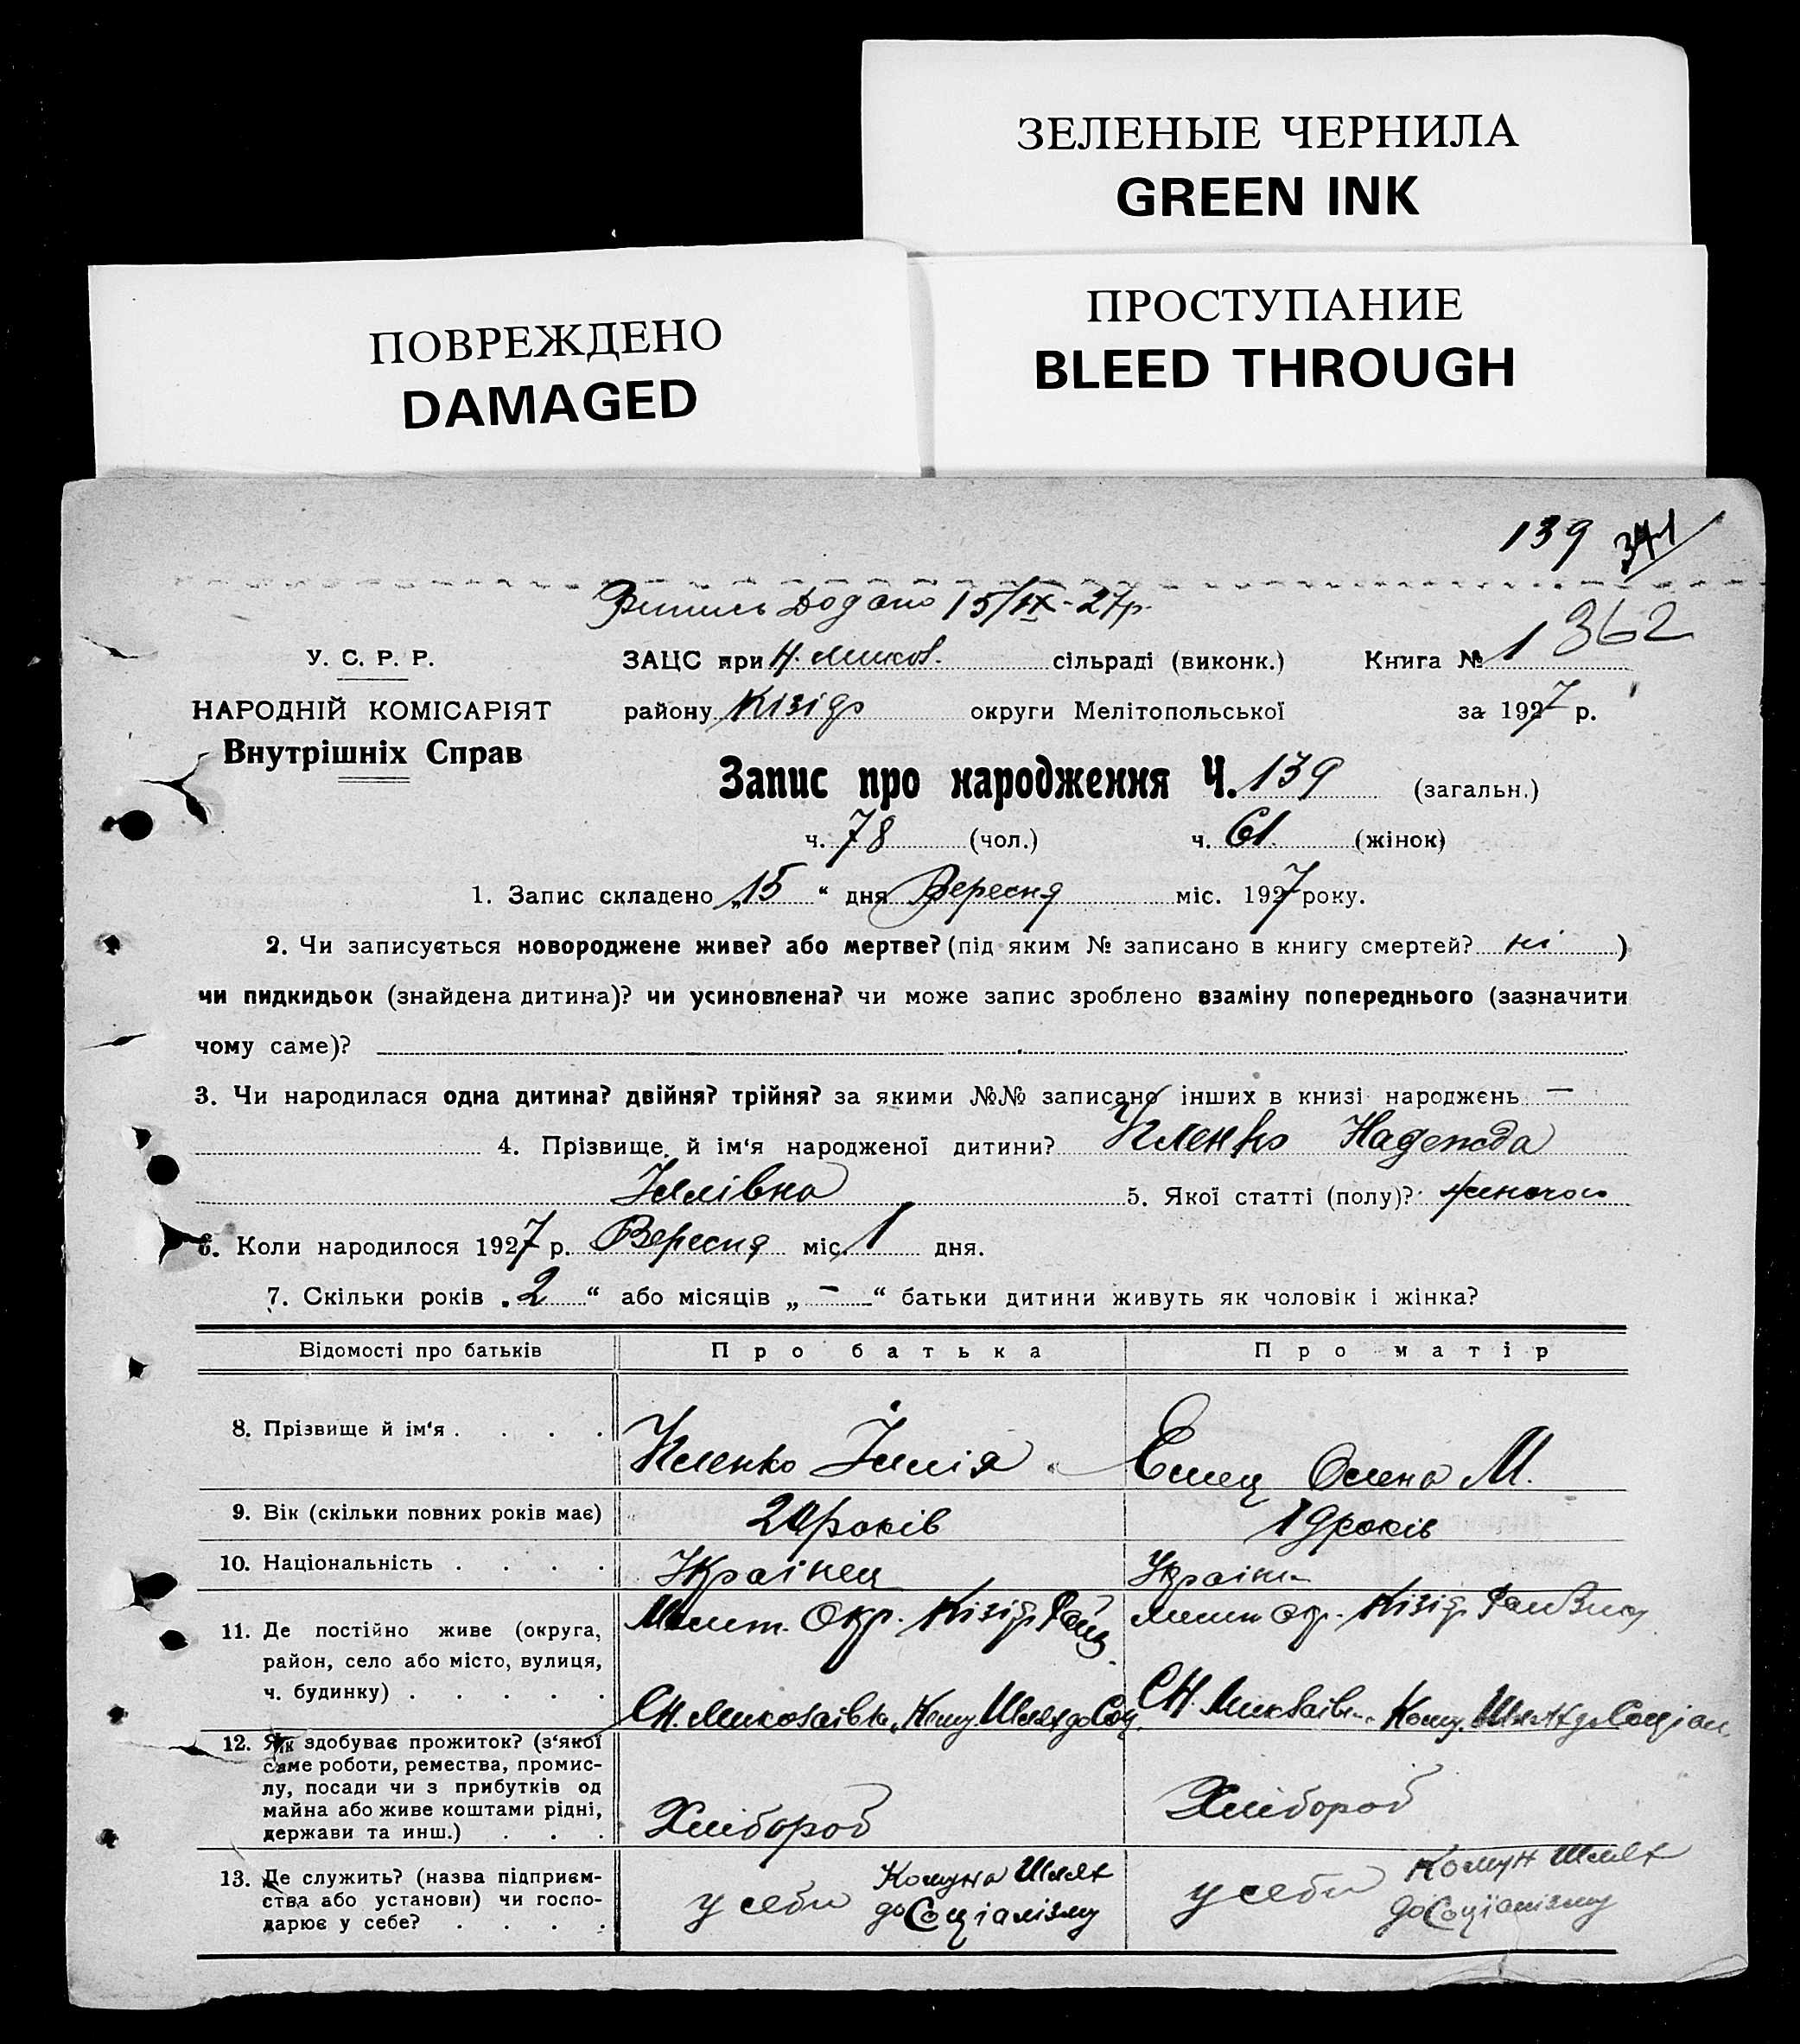 ЗЕЛЕНЫЕ ЧЕРНИЛА
GREEN INK
ПОВРЕЖДЕНО
DAMAGED
ПРОСТУПАНИЕ
BLEED THROUGH
139 371
Додано 15/IX-27р.
362
У. С. Р. Р.
ЗАЦС при Н. Микол. сільраді (виконк.) Книга № 1
НАРОДНІЙ КОМІСАРІЯТ
району Кізіяр округи Мелітопольської за 1927 р.
Внутрішніх Справ
Запис про народження Ч. 139 (загальн.)
ч. 78 (чол.) ч. 61. (жінок)
1. Запис складено „15“ дня Вересня міс. 1927 року.
2. Чи записується новороджене живе? або мертве? (під яким № записано в книгу смертей? ні)
чи пидкидьок (знайдена дитина)? чи усиновлена? чи може запис зроблено взаміну попереднього (зазначити
чому саме)?
3. Чи народилася одна дитина? двійня? трійня? за якими №№ записано інших в книзі народжень —
4. Прізвище й ім‘я народженої дитини? Надежда
Іллівна 5. Якої статті (полу)? жіночої
6. Коли народилося 1927 р. Вересня міс. 1 дня.
7. Скільки років „2“ або місяців „—“ батьки дитини живуть як чоловік і жінка?
Відомості про батьків Про батька Про матір
8. Прізвище й ім‘я . . . . Ілля Олена М.
9. Вік (скільки повних років має) 20 років 19 років
10. Національність . . . . Українец Україн.
11. Де постійно живе (округа,
район, село або місто, вулиця,
ч. будинку) . . . . .
Мелит. Окр. Кізіяр. Мелит Окр. Кізіяр.
С Н. Миколаївка, Кому. Шлях до Соц. С Н. Миколаїв. Кому. Шлях до Соціал.
12. Як здобуває прожиток? (з‘якої
саме роботи, ремества, промис-
лу, посади чи з прибутків од
майна або живе коштами рідні,
держави та инш.) . . .
Хлібороб Хлібороб
13. Де служить? (назва підприєм-
ства або установи) чи госпо-
дарює у себе? . . . .
у себи Комуна Шлях
до Соціалізму
у себи Комун Шлях
до Соціалізму